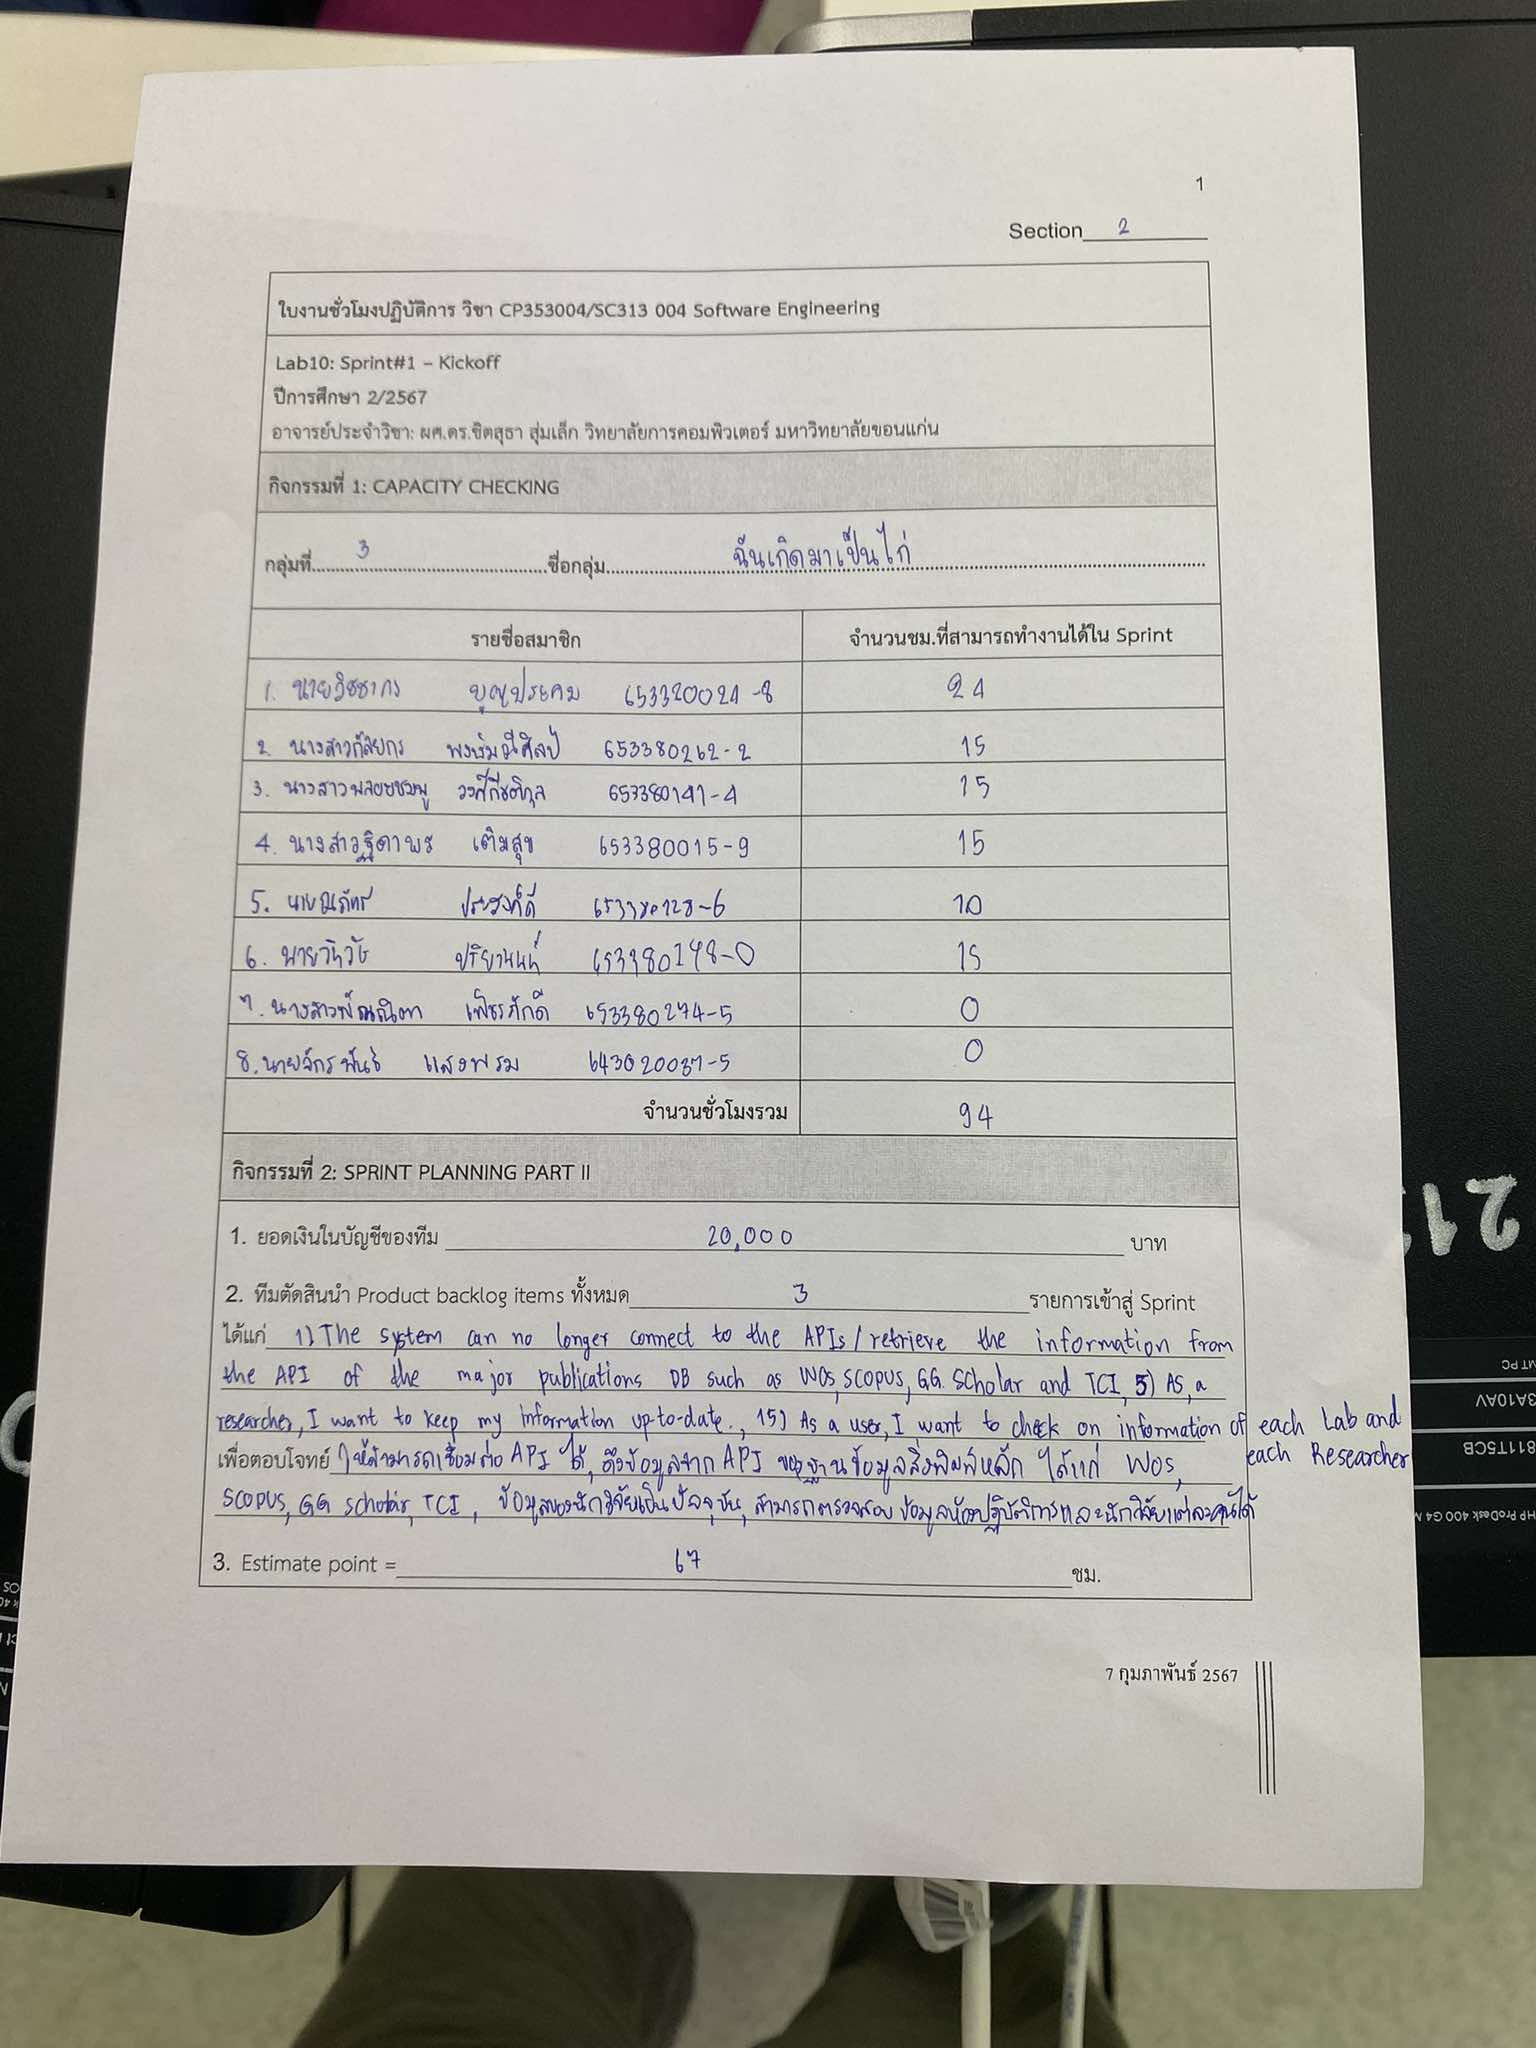 1
Section 2
ใบงานชั่วโมงปฏิบัติการ วิชา CP353004/SC313 004 Software Engineering
Lab10: Sprint#1 – Kickoff
ปีการศึกษา 2/2567
อาจารย์ประจำวิชา: ผศ.ดร.ชิตสุธา สุ่มเล็ก วิทยาลัยการคอมพิวเตอร์ มหาวิทยาลัยขอนแก่น
กิจกรรมที่ 1: CAPACITY CHECKING
กลุ่มที่ 3 ชื่อกลุ่ม ฉันเกิดมาเป็นไก่
รายชื่อสมาชิก จำนวนชม.ที่สามารถทำงานได้ใน Sprint
1. นายวิชชากร บุญประคม 653320021-8 24
2. นางสาวกัลยกร 653380262-2 15
3. นางสาวพลอยชมพู 653380141-4 15
4. นางสาวฐิดาพร เติมสุข 653380015-9 15
5. นายณภัทร ประสงค์ดี 653380128-6 10
6. นายวิวิช ปริยานนท์ 653380148-0 15
7. นางสาวพัณณิตา เพ็ชรภักดี 653380274-5 0
8. นายจักรพันธ์ แสงพรม 643020037-5 0
จำนวนชั่วโมงรวม 94
กิจกรรมที่ 2: SPRINT PLANNING PART II
1. ยอดเงินในบัญชีของทีม 20,000 บาท
2. ทีมตัดสินนำ Product backlog items ทั้งหมด 3 รายการเข้าสู่ Sprint
ได้แก่ 1) The system can no longer connect to the APIs/retrieve the information from
the API of the major publications DB such as WOS, SCOPUS, GG. Scholar and TCI, 5) As, a
researcher, I want to keep my information up-to-date., 15) As a user, I want to check on information of each Lab and
each Researcher
เพื่อตอบโจทย์ ให้สามารถเชื่อมต่อ API ได้, ดึงข้อมูลจาก API ของฐานข้อมูลสิ่งพิมพ์หลัก ได้แก่ WOS,
SCOPUS, GG scholar, TCI, ข้อมูลของนักวิจัยเป็นปัจจุบัน, สามารถตรวจสอบข้อมูลห้องปฏิบัติการและนักวิจัยแต่ละคนได้
3. Estimate point = 67 ชม.
7 กุมภาพันธ์ 2567
21
MT PC
3A10AV
811T5CB
HP ProDesk 400 G4 M